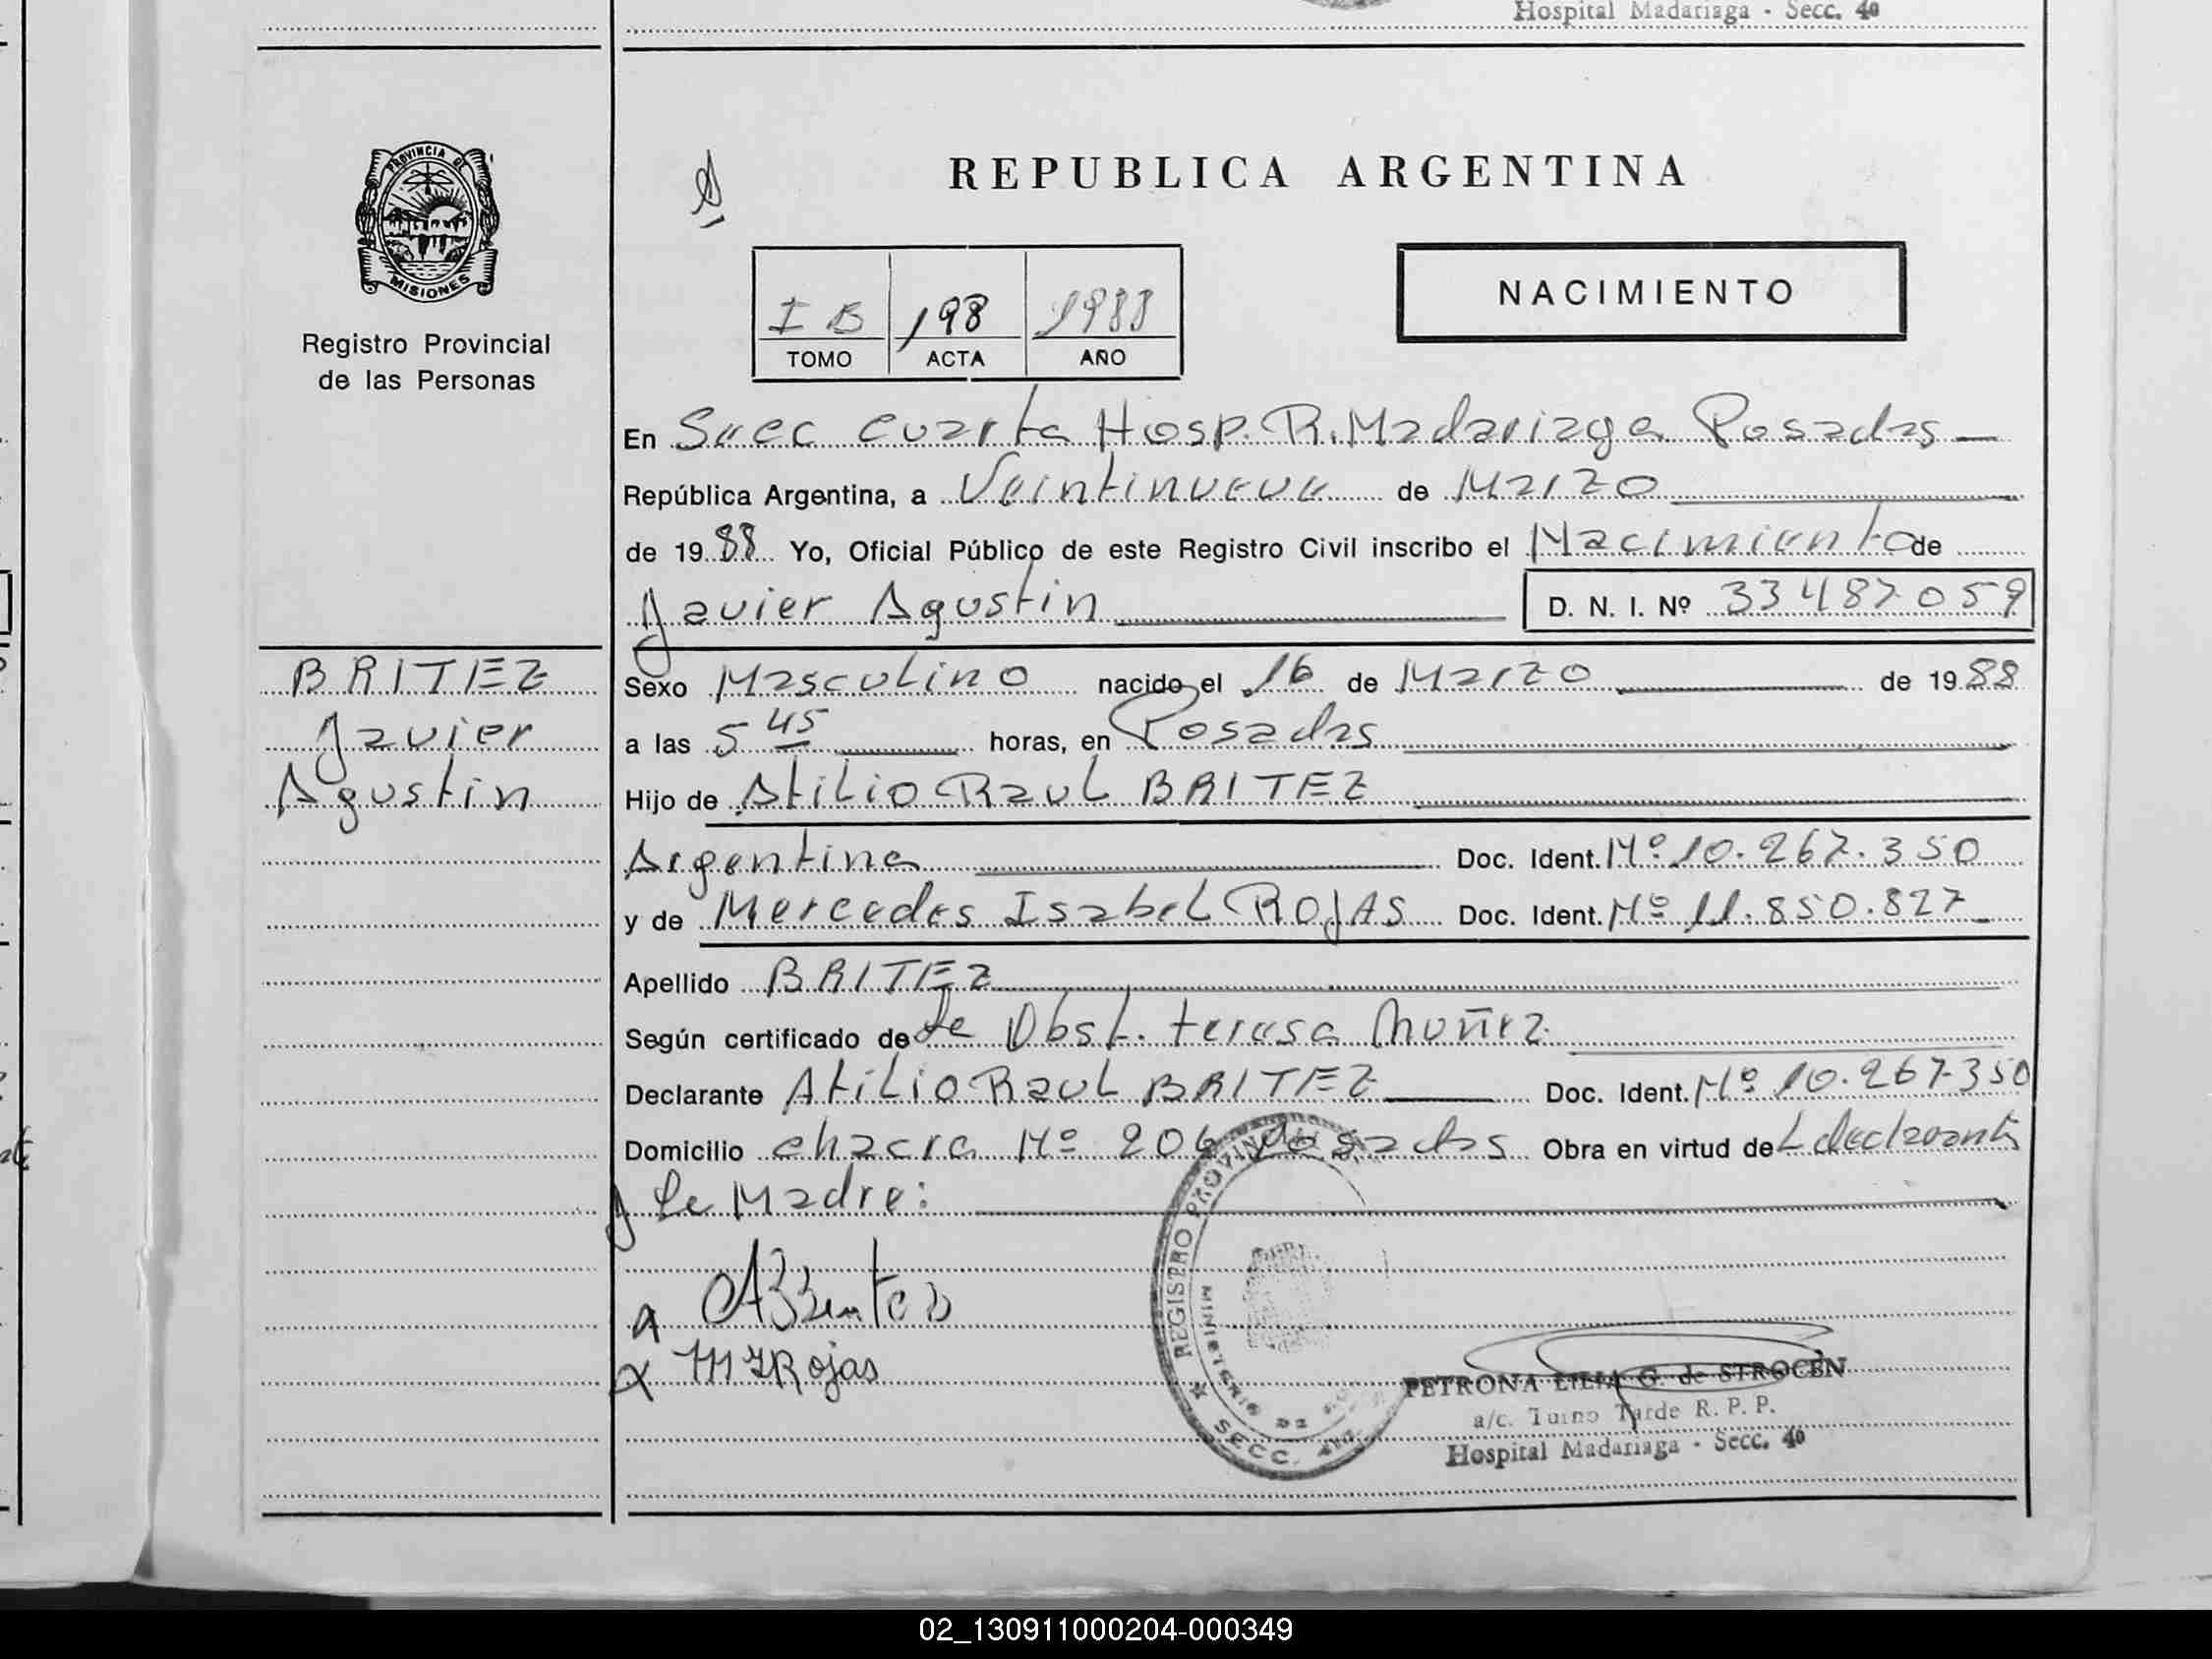 Hospital Madariaga - Secc. 4a
PROVINCIA DE
MISIONES
Registro Provincial
de las Personas
REPUBLICA ARGENTINA
NACIMIENTO
I B 198 1988
TOMO ACTA AÑO
En Secc cuarta Hosp. R. Madariaga Posadas
República Argentina, a Veintinueve de Marzo
de 1988 Yo, Oficial Público de este Registro Civil inscribo el Nacimiento de
Javier Agustin D. N. I. Nº 33487059
BRITEZ
Javier
Agustin
Sexo Masculino nacido el 16 de Marzo de 1988
a las 5 45 horas, en Posadas
Hijo de Atilio Raul BRITEZ
Argentina Doc. Ident. Nº 10.267.350
y de Mercedes Isabel ROJAS Doc. Ident. Nº 11.850.827
Apellido BRITEZ
Según certificado de la Obst. teresa Muñez
Declarante Atilio Raul BRITEZ Doc. Ident. Nº 10.267.350
Domicilio chacra Nº 206 Posadas Obra en virtud de L declarante
y la Madre:
MIRojas
REGISTRO PROVINCIAL
MINISTERIO DE
SECC. 4ta
PETRONA LILIA G. de STROCEN
a/c. Turno Tarde R. P. P.
Hospital Madariaga - Secc. 4a
02_130911000204-000349